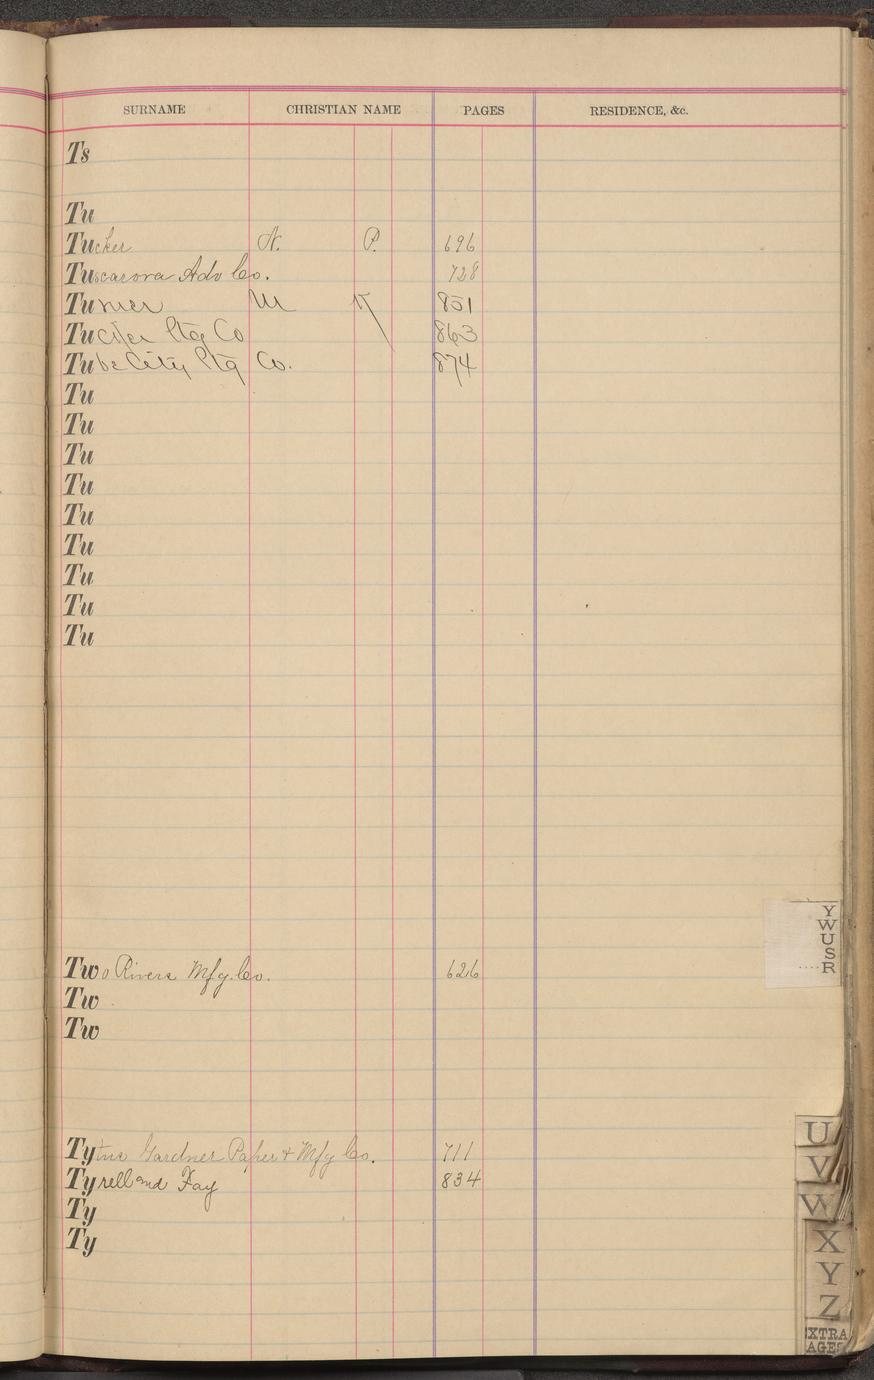 SURNAME CHRISTIAN NAME PAGES RESIDENCE, &c.
Ts
Tu
Tucker N. P. 696
Tuscarora Adv Co. 728
Turner M K 851
Tucker Ptg Co 863
Tube City Ptg Co. 874
Tu
Tu
Tu
Tu
Tu
Tu
Tu
Tu
Tu
Two Rivers Mfg. Co. 626
Tw
Tw
Tytus Gardner Paper & Mfg Co. 711
Tyrell and Fay 834
Ty
Ty
Y
W
U
S
....R
U
V
W
X
Y
Z
EXTRA
AGES